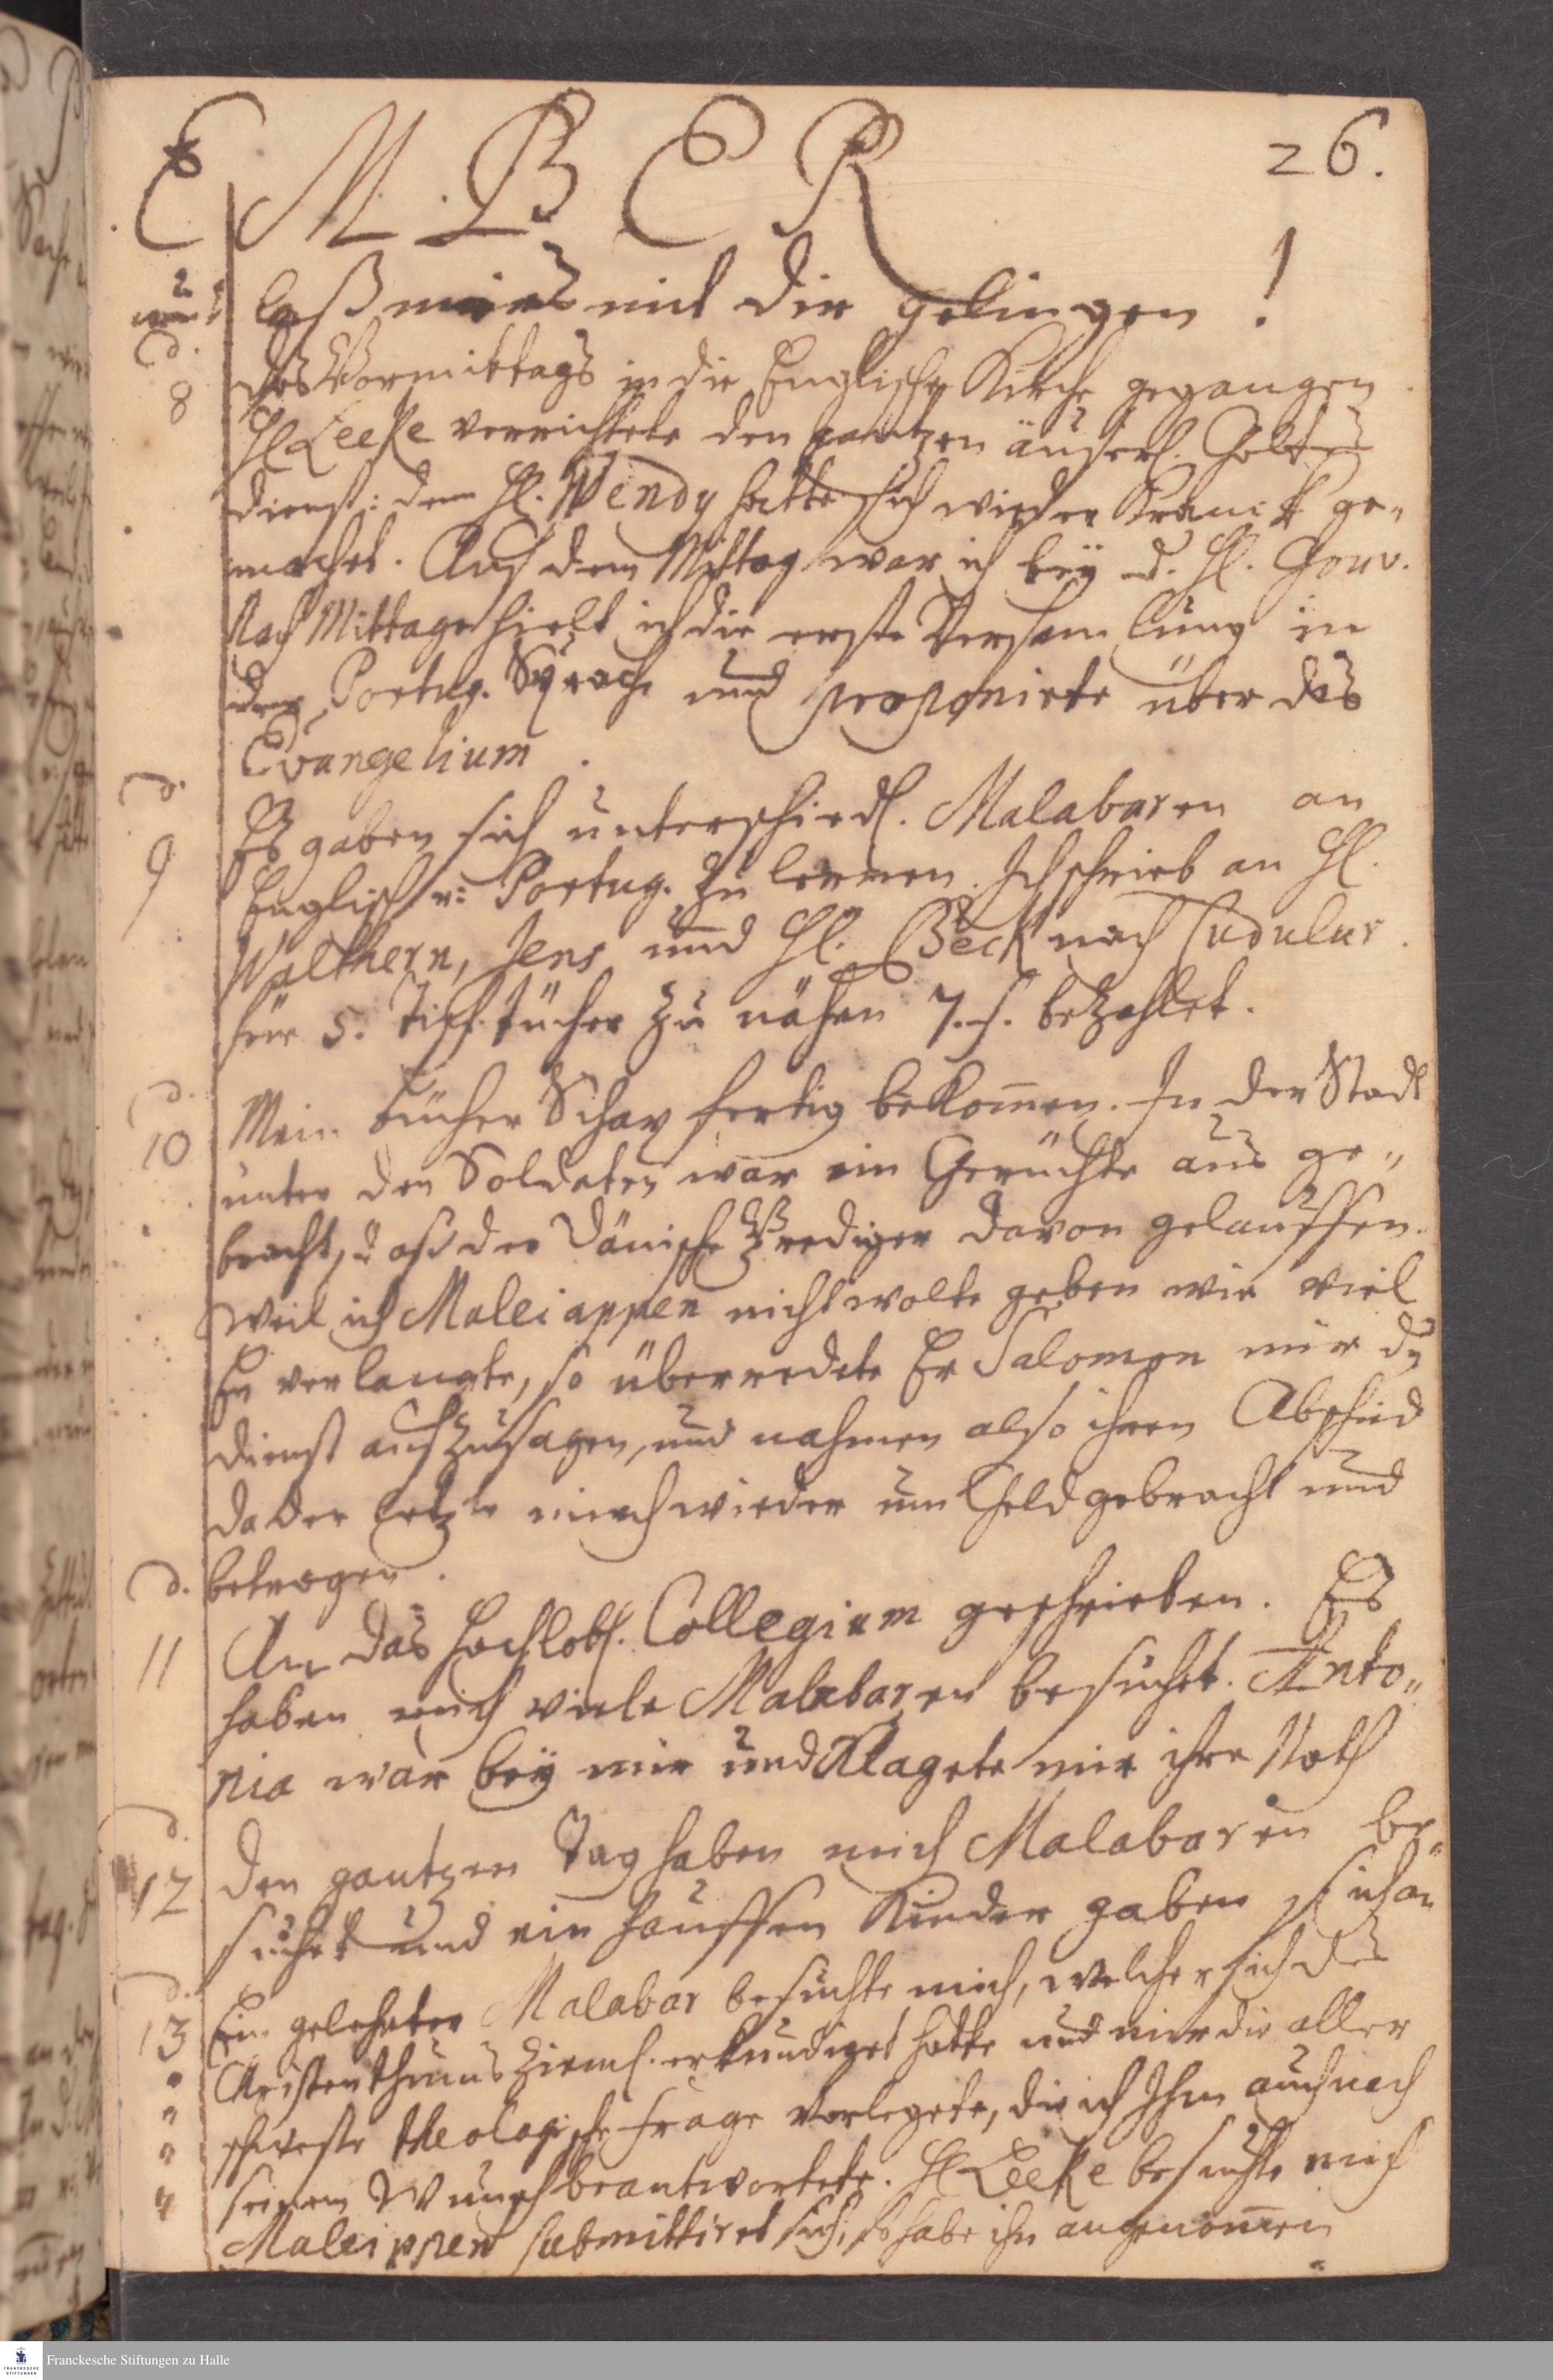 E M B E R
26.
laß mirs mit dir gelingen!
d.
8
des Vormittags in die Englische Kirche gegangen
H. Leeke verrichtete den gantzen äuserl. Gottes
dienst: denn H. Wendy hatte sich wieder Kranck ge„
machet. Auf den Mittag war ich bey d. H. Gouv.
Nach Mittage hielt ich die erste Versamlung in
der Portug. Sprache und proponirte über das
Evangelium.
d.
9
Es gaben sich unterschiedl. Malabaren an
Englisch u: Portug. zu lernen. Ich schrieb an H.
Walthern, Jens und H. Beck nach Cudulur.
für 5. Tisch tücher zu nähen 7. f. bezahlet.
d.
10
Mein bücher Schap fertig bekommen. In der Stadt
unter den Soldaten war ein Gerüchte aus ge„
bracht, daß der Dänische Prediger davon gelauffen.
Weil ich Maleiappen nicht wolte geben wie viel
Er verlangte, so überredete Er Salomon mir den
dienst aufzusagen, und nahmen also ihren Abschied
da der letzte mich wieder um Geld gebracht und
betrogen.
d.
11
An das hochlobl. Collegium geschrieben. Es
haben mich viele Malabaren besuchet. Anto„
nia war bey mir und Klagete mir ihre Noth
d.
12
den gantzen Tag haben mich Malabaren be„
suchet und ein hauffen Kinder gaben sich an
d.
13
Ein gelehrter Malabar besuchte mich, welcher sich des
Christenthums zieml. erkundiget hatte und mir die aller
schwerste theologische frage vorlegete, die ich Ihm auch nach
seinem Wunsch beantwortete. H Leeke besuchte mich
Maleippen submittiret sich, so habe ihn angenommen
Franckesche Stiftungen zu Halle